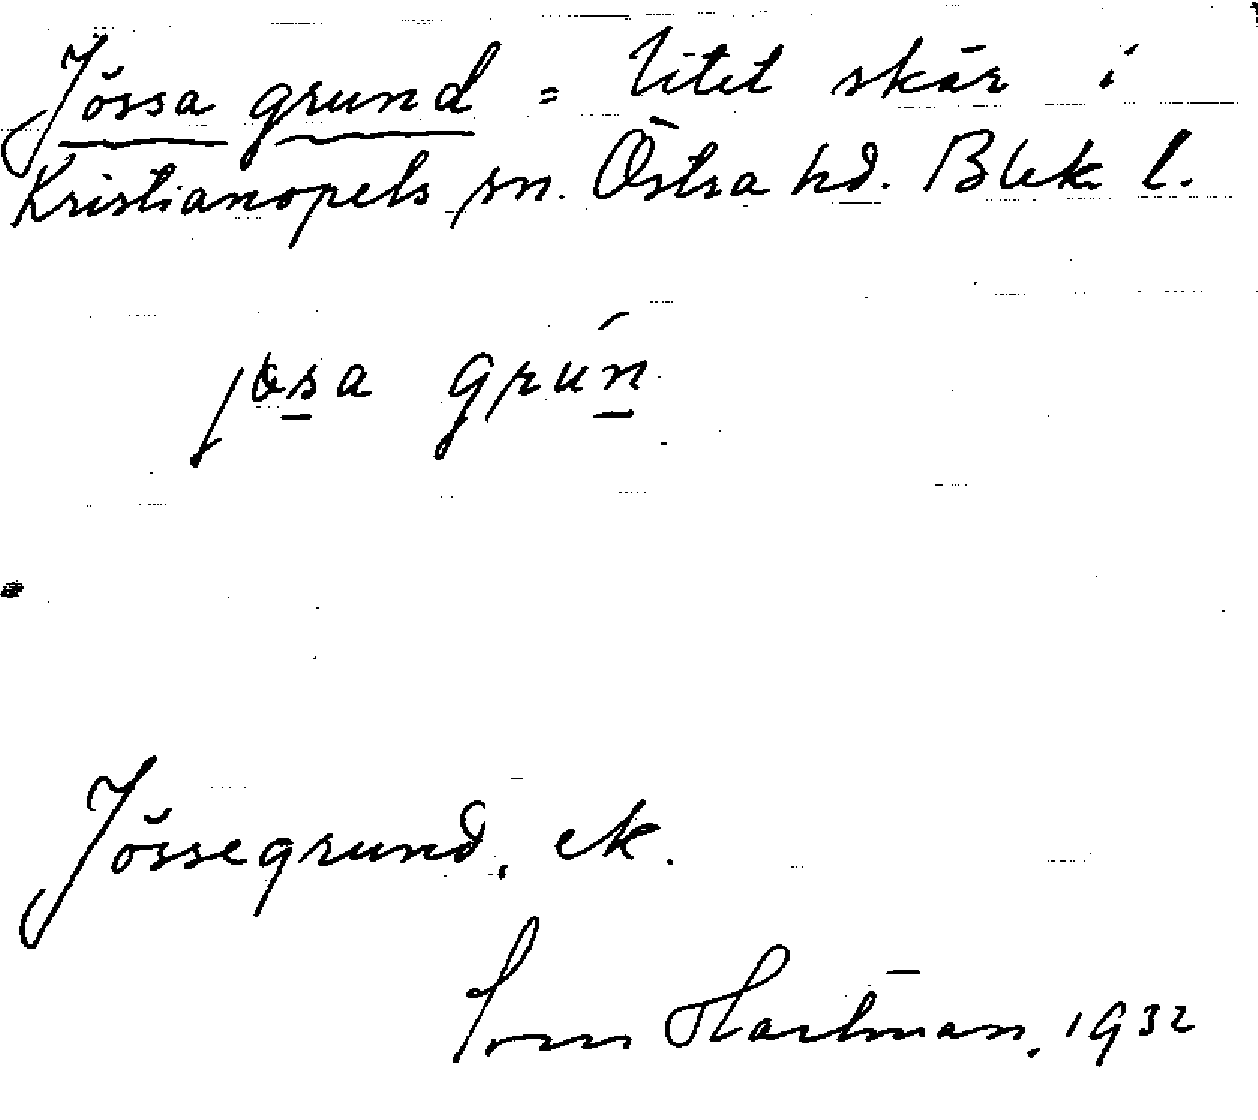 Jössa grund = litet skär i
Kristianopels sn. Östra hd. Blek. l.
jösa grún
Jössegrund, ek.
Hartman, 1932